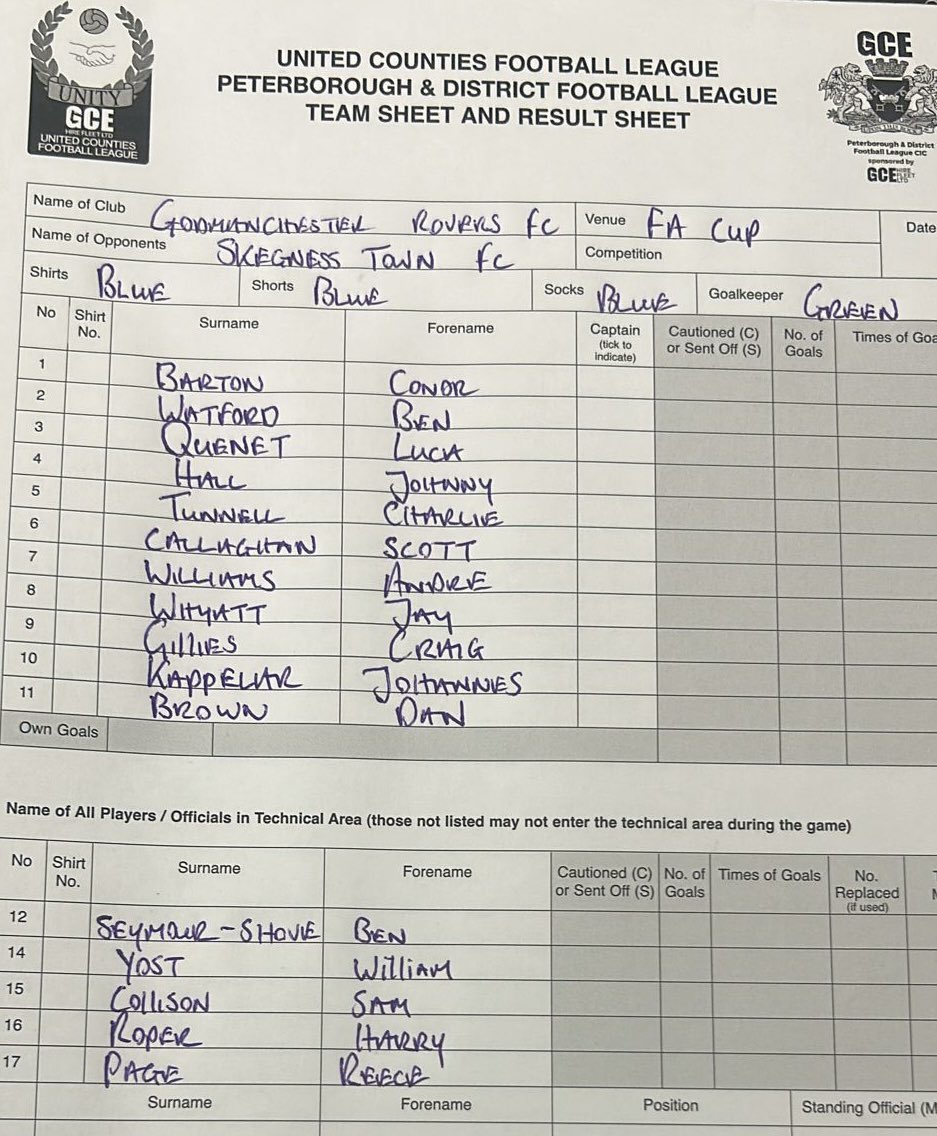 UNITY
GCE
HIRE FLEET LTD
UNITED COUNTIES
FOOTBALL LEAGUE
UNITED COUNTIES FOOTBALL LEAGUE
PETERBOROUGH & DISTRICT FOOTBALL LEAGUE
TEAM SHEET AND RESULT SHEET
GCE
Peterborough & District
Football League CIC
sponsored by
GCE HIRE FLEET LTD
Name of Club GODMANCHESTER ROVERS FC Venue FA CUP Date
Name of Opponents SKEGNESS TOWN FC Competition
Shirts BLUE Shorts BLUE Socks BLUE Goalkeeper GREEN
No Shirt No. Surname Forename Captain (tick to indicate) Cautioned (C) or Sent Off (S) No. of Goals Times of Goa
1 BARTON CONOR
2 WATFORD BEN
3 QUENET LUCA
4 HALL JOHNNY
5 TUNNELL CHARLIE
6 CALLAGHAN SCOTT
7 WILLIAMS ANDRE
8 WHYATT JAY
9 GILLIES CRAIG
10 KAPPELAR JOHANNES
11 BROWN DAN
Own Goals
Name of All Players / Officials in Technical Area (those not listed may not enter the technical area during the game)
No Shirt No. Surname Forename Cautioned (C) or Sent Off (S) No. of Goals Times of Goals No. Replaced (if used)
12 SEYMOUR-SHOVE BEN
14 YOST WILLIAM
15 COLLISON SAM
16 ROPER HARRY
17 PAGE REECE
Surname Forename Position Standing Official (M